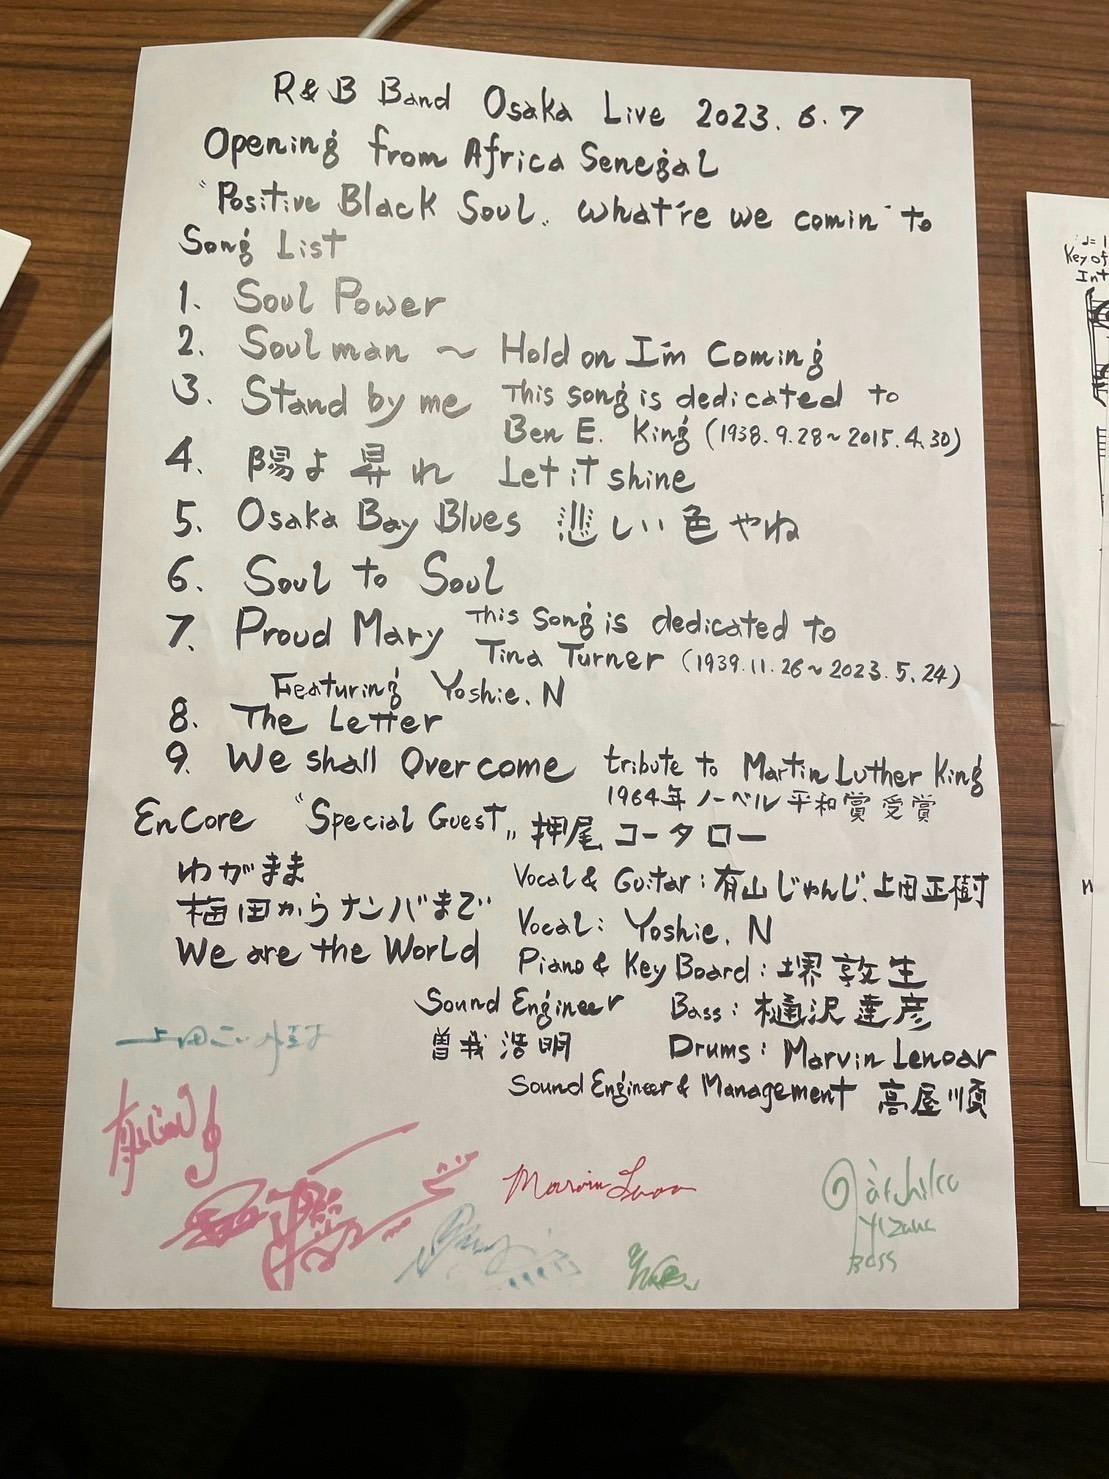 R&B Band Osaka Live 2023.6.7
Opening from Africa Senegal
"Positive Black Soul" What're we comin' to
Song List
1. Soul Power
2. Soul man 〜 Hold on I'm Coming
3. Stand by me This song is dedicated to
Ben E. King (1938.9.28~2015.4.30)
4. 陽よ昇れ Let it shine
5. Osaka Bay Blues 悲しい色やね
6. Soul to Soul
7. Proud Mary This song is dedicated to
Tina Turner (1939.11.26~2023.5.24)
Featuring Yoshie.N
8. The Letter
9. We shall Overcome tribute to Martin Luther King
1964年 ノーベル平和賞受賞
EnCore "Special Guest" 押尾コータロー
わがまま
梅田からナンバまで
We are the World
Vocal & Guitar : 有山じゅんじ.上田正樹
Vocal : Yoshie.N
Piano & KeyBoard : 堺敦生
Sound Engineer Bass : 樋沢達彦
曽我浩明 Drums : Marvin Lenoar
Sound Engineer & Management 高屋順
Marvin
Bass
Key of
Int